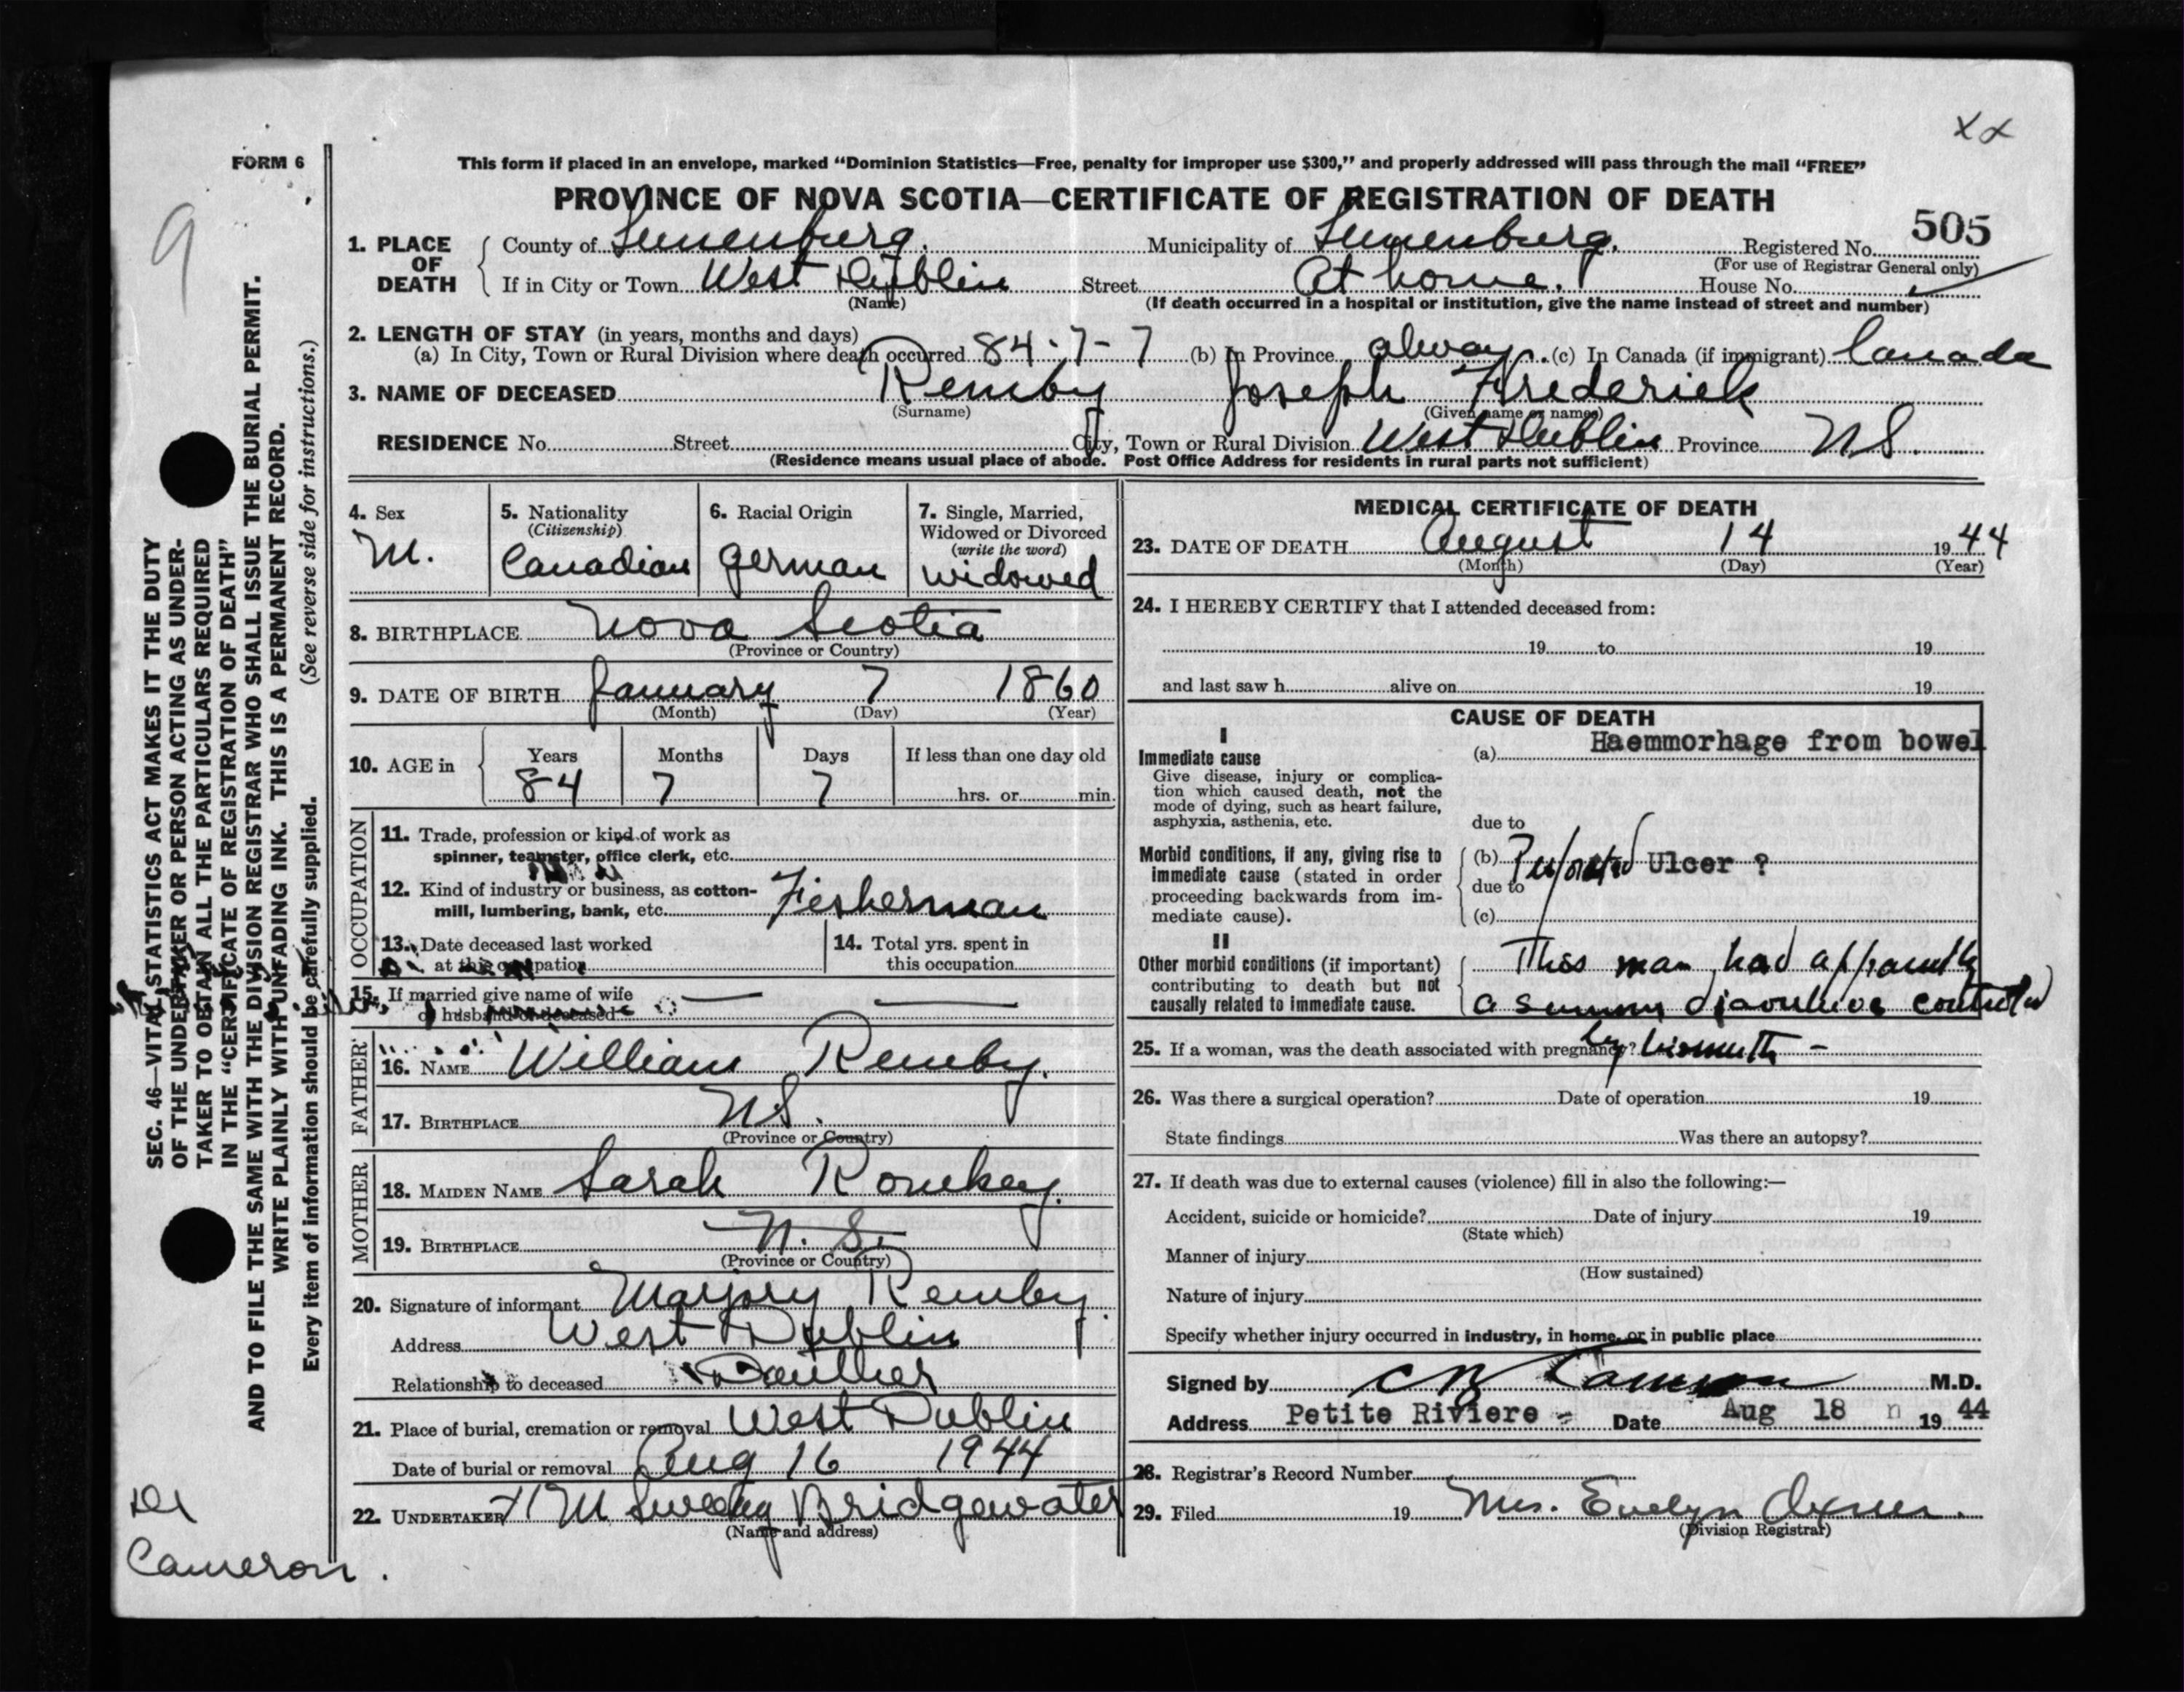 xx
FORM 6
This form if placed in an envelope, marked “Dominion Statistics—Free, penalty for improper use $300,” and properly addressed will pass through the mail “FREE”
PROVINCE OF NOVA SCOTIA—CERTIFICATE OF REGISTRATION OF DEATH
9
1. PLACE OF DEATH
County of Lunenburg. Municipality of Lunenburg. Registered No. 505
(For use of Registrar General only)
If in City or Town West Dublin Street At home. House No.
(Name) (If death occurred in a hospital or institution, give the name instead of street and number)
2. LENGTH OF STAY (in years, months and days)
(a) In City, Town or Rural Division where death occurred 84-7-7 (b) In Province always. (c) In Canada (if immigrant) Canada
3. NAME OF DECEASED Remby Joseph Frederick
(Surname) (Given name or names)
RESIDENCE No. Street City, Town or Rural Division West Dublin Province NS.
(Residence means usual place of abode. Post Office Address for residents in rural parts not sufficient)
SEC. 46—VITAL STATISTICS ACT MAKES IT THE DUTY
OF THE UNDERTAKER OR PERSON ACTING AS UNDER-
TAKER TO OBTAIN ALL THE PARTICULARS REQUIRED
IN THE “CERTIFICATE OF REGISTRATION OF DEATH”
AND TO FILE THE SAME WITH THE DIVISION REGISTRAR WHO SHALL ISSUE THE BURIAL PERMIT.
WRITE PLAINLY WITH UNFADING INK. THIS IS A PERMANENT RECORD.
Every item of information should be carefully supplied. (See reverse side for instructions.)
4. Sex
M.
5. Nationality
(Citizenship)
Canadian
6. Racial Origin
German
7. Single, Married,
Widowed or Divorced
(write the word)
widowed
8. BIRTHPLACE Nova Scotia
(Province or Country)
9. DATE OF BIRTH January 7 1860
(Month) (Day) (Year)
10. AGE in
Years Months Days If less than one day old
84 7 7 hrs. or min.
OCCUPATION
11. Trade, profession or kind of work as
spinner, teamster, office clerk, etc.
12. Kind of industry or business, as cotton-
mill, lumbering, bank, etc. Fisherman
13. Date deceased last worked
at this occupation
14. Total yrs. spent in
this occupation
15. If married give name of wife
or husband of deceased — —
FATHER
16. NAME William Remby.
17. BIRTHPLACE NS.
(Province or Country)
MOTHER
18. MAIDEN NAME Sarah Romkey.
19. BIRTHPLACE N. S.
(Province or Country)
20. Signature of informant Marjory Remby.
Address West Dublin
Relationship to deceased
21. Place of burial, cremation or removal West Dublin
Date of burial or removal Aug 16 1944
22. UNDERTAKER M Sweeny Bridgewater
(Name and address)
MEDICAL CERTIFICATE OF DEATH
23. DATE OF DEATH August 14 1944
(Month) (Day) (Year)
24. I HEREBY CERTIFY that I attended deceased from:
19 to 19
and last saw h alive on 19
CAUSE OF DEATH
I
Immediate cause
Give disease, injury or complica-
tion which caused death, not the
mode of dying, such as heart failure,
asphyxia, asthenia, etc.
(a) Haemmorhage from bowel
due to
Morbid conditions, if any, giving rise to
immediate cause (stated in order
proceeding backwards from im-
mediate cause).
(b) Perforated Ulcer ?
due to
(c)
II
Other morbid conditions (if important)
contributing to death but not
causally related to immediate cause.
This man had apparently
a summer controlled
by bismuth -
25. If a woman, was the death associated with pregnancy?
26. Was there a surgical operation? Date of operation 19
State findings Was there an autopsy?
27. If death was due to external causes (violence) fill in also the following:—
Accident, suicide or homicide? Date of injury 19
(State which)
Manner of injury
(How sustained)
Nature of injury
Specify whether injury occurred in industry, in home, or in public place
Signed by Cameron M.D.
Address Petite Riviere - Date Aug 18 n 19 44
28. Registrar's Record Number
29. Filed 19 Mrs. Evelyn
(Division Registrar)
Dr
Cameron.